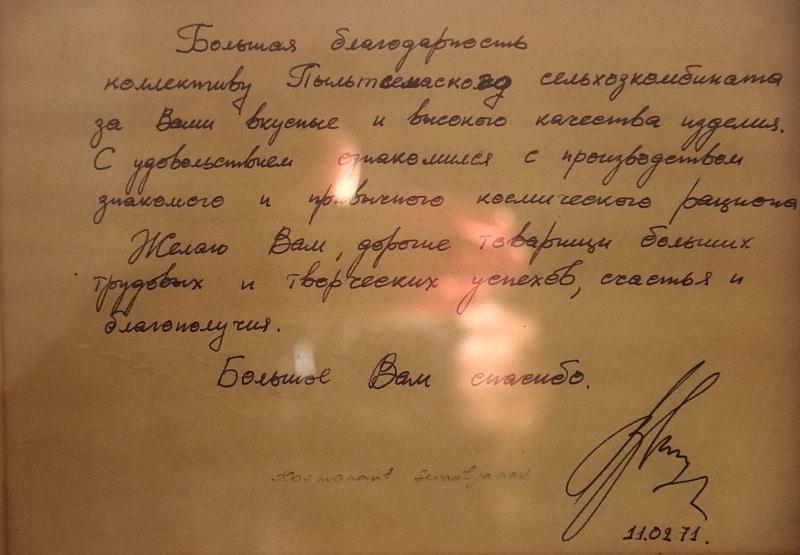 Большая благодарность
коллективу Пыльтсемаского сельхозкомбината
за Ваши вкусные и высокого качества изделия.
С удовольствием ознакомился с производством
знакомого и привычного космического рациона
Желаю Вам, дорогие товарищи больших
трудовых и творческих успехов, счастья и
благополучия.
Большое Вам спасибо.
Kosmonaut Sevastjanov
11.02.71.